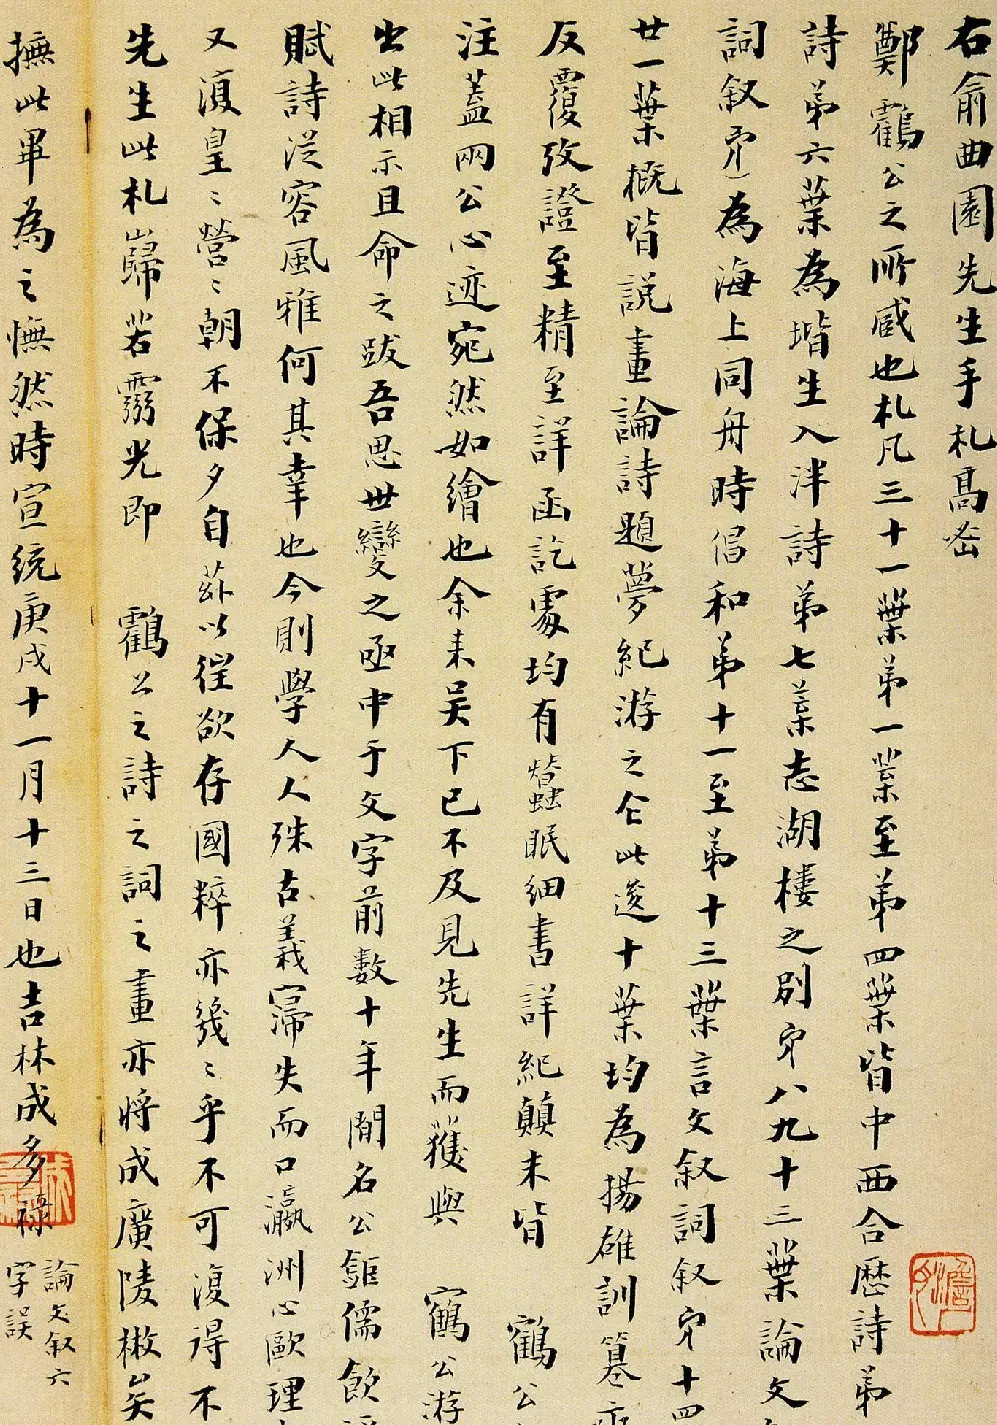 右俞曲園先生手札高密
鄭鶴公之所藏也札凡三十一葉弟一葉至弟四葉皆中西合歷詩弟
詩弟六葉為堦生入泮詩弟七葉志湖樓之別弟八九十三葉論文
詞叙弟為海上同舟時倡和弟十一至弟十三葉言文叙詞叙弟十四
廿一葉概皆説畫論詩題夢紀游之仺此後十葉均為揚雄訓纂
反覆攷證至精至詳函訖處均有蠶眠細書詳紀顛末皆 鶴公
注蓋兩公心迹宛然如繪也余来吴下已不及見先生而獲與 鶴公游
出此相示且命之跋吾思世變之亟中于文字前數十年間名公鉅儒飲
賦詩從容風雅何其幸也今則學人人殊古義霈失而口瀛洲心歐理
又復皇〻營〻朝不保夕自茲以徃欲存國粹亦幾〻乎不可復得不
先生此札巋若靈光即 鶴公之詩之詞之畫亦将成廣陵檄矣
撫此畢為之憮然時宣統庚戌十一月十三日也吉林成多祿
論文叙六
字誤